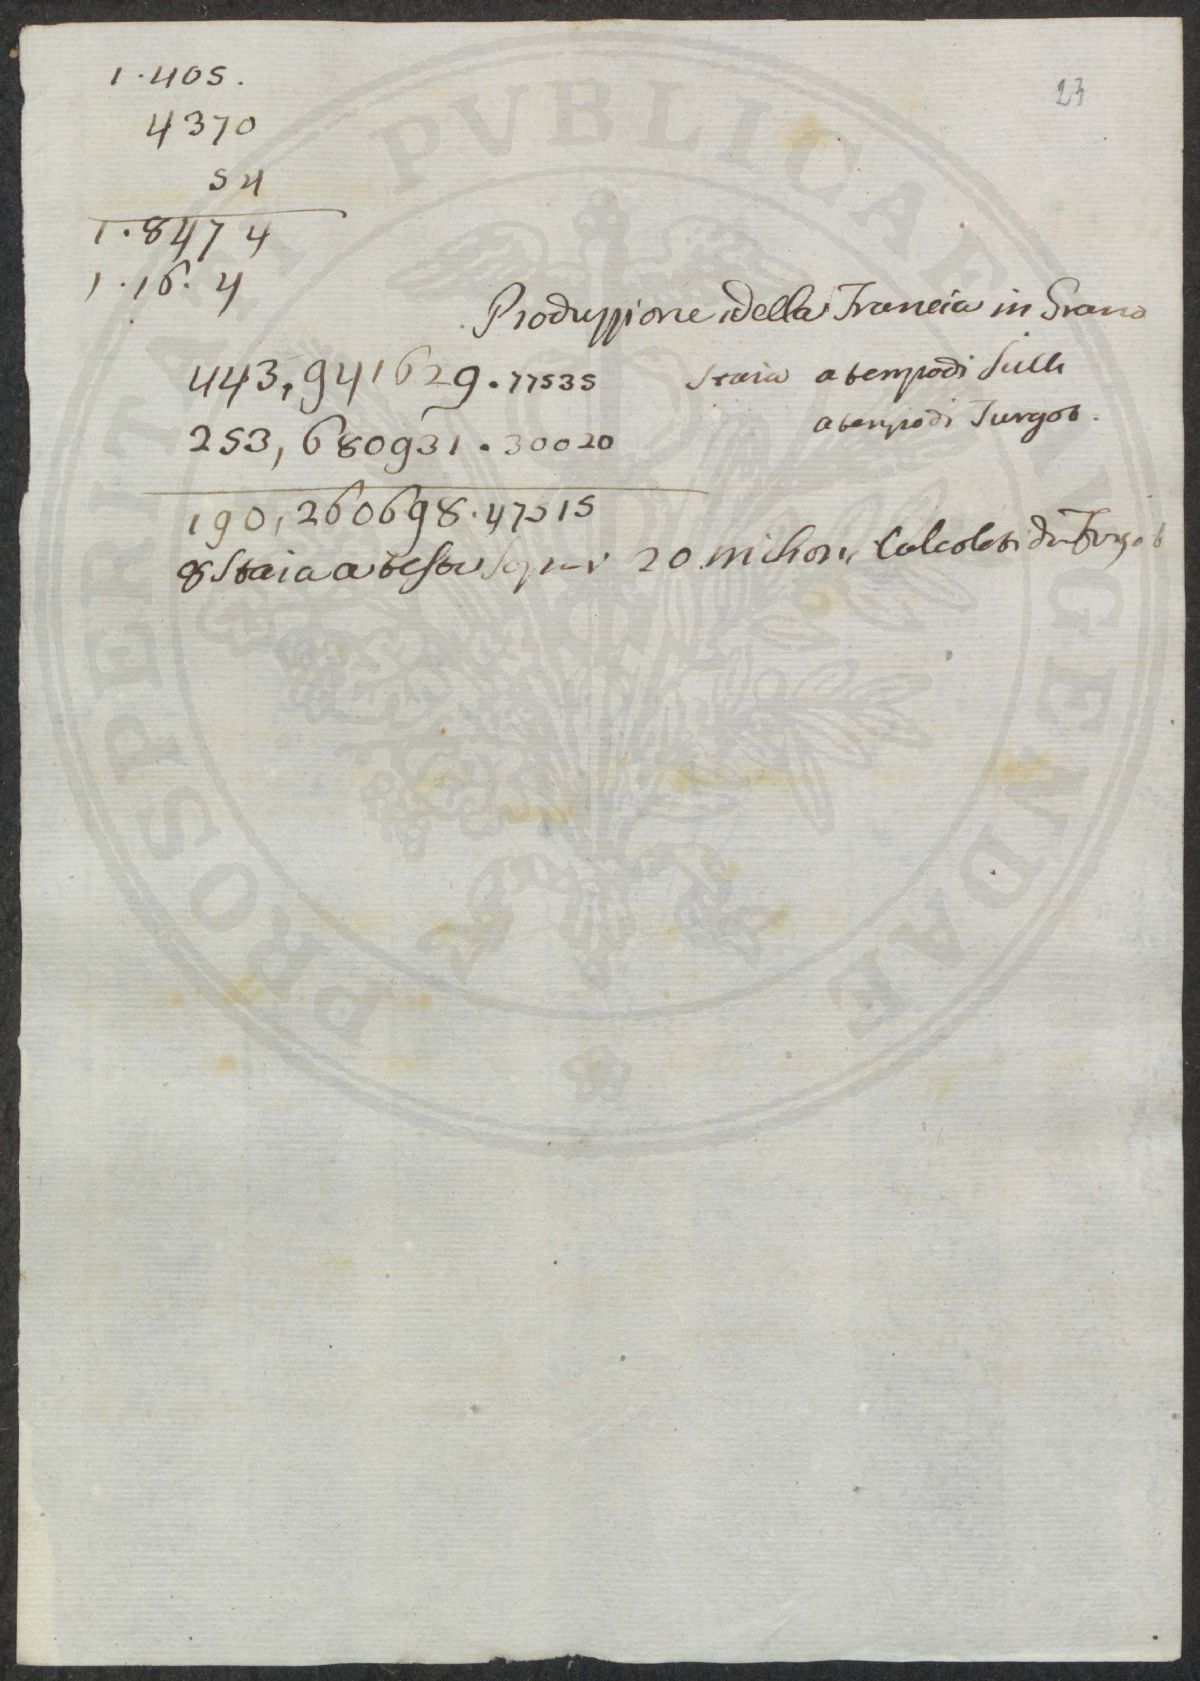 23
1.405.
4370
54
1.8474
1.16.4
Produzzione della Francia in Grano
443,941629.77535 Staia a tempo di Sulli
253,680931.30020 a tempo di Turgot.
190,260698.47515
8 Staia a testa sopra 20 milioni Calcolati da Turgot
PROSPERITATI PVBLICAE AVGENDAE